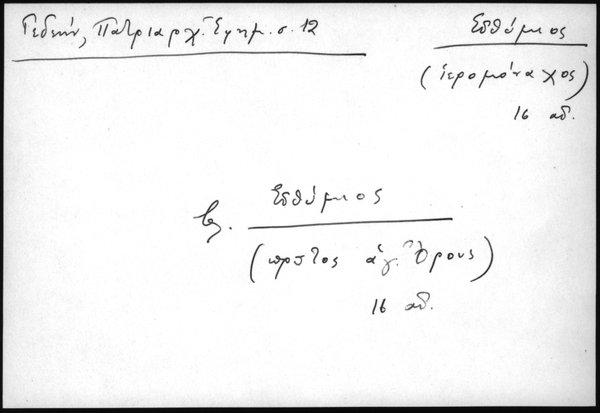 Γεδεών, Πατριαρχ. Ἐφημ. σ. 12
Εὐθύμιος
(ἱερομόναχος)
16 αἰ.
βλ. Εὐθύμιος
(πρῶτος ἁγ. Ὄρους)
16 αἰ.